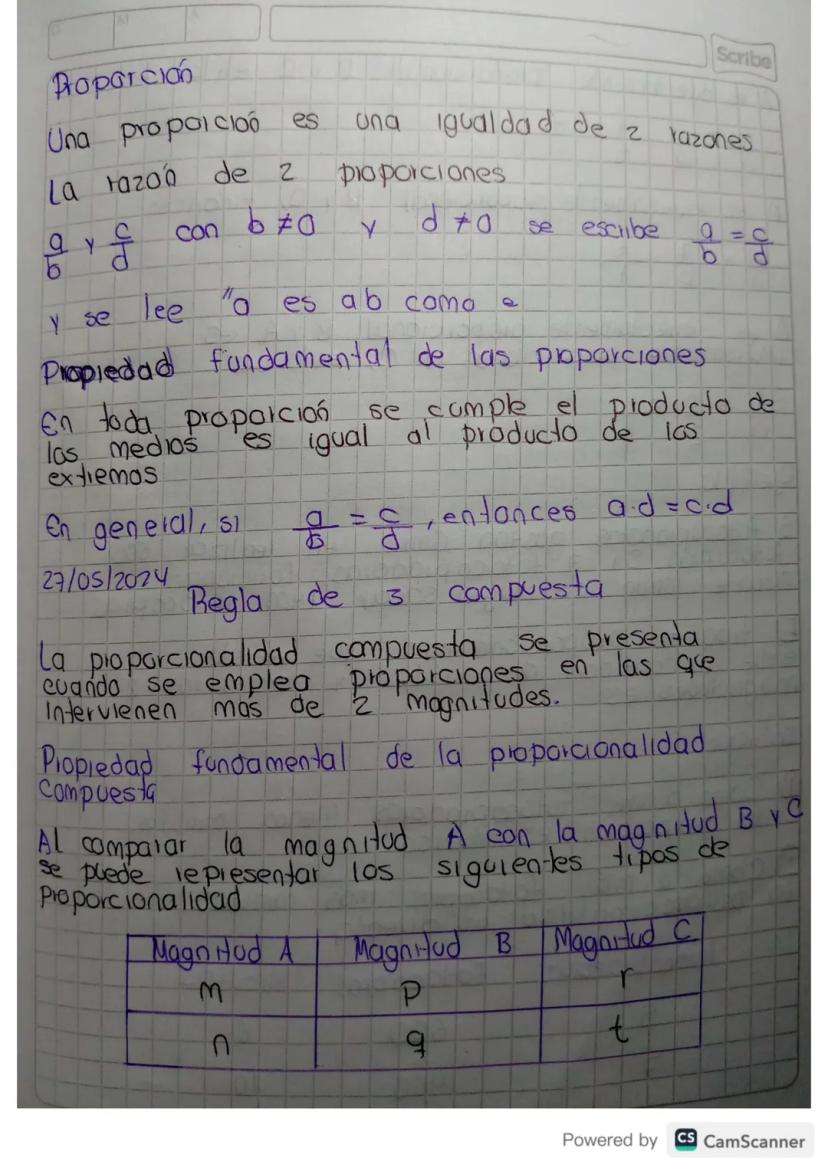 Scribe
Proporción
Una proporcion es una igualdad de 2 razones
La razón de 2 proporciones
a/b y c/d con b ≠ 0 y d ≠ 0 se escribe a/b = c/d
y se lee "a es a b como e
Propiedad fundamental de las proporciones
En toda proporción se cumple el producto de
los medios es igual al producto de los
extremos
En general, si a/b = c/d, entonces a·d = c·d
27/05/2024
Regla de 3 compuesta
La proporcionalidad compuesta se presenta
cuando se emplea proporciones en las que
intervienen mas de 2 magnitudes.
Propiedad fundamental de la proporcionalidad
Compuesta
Al comparar la magnitud A con la magnitud B y C
se puede representar los siguientes tipos de
Proporcionalidad
Magnitud A Magnitud B Magnitud C
m p r
n q t
Powered by CS CamScanner